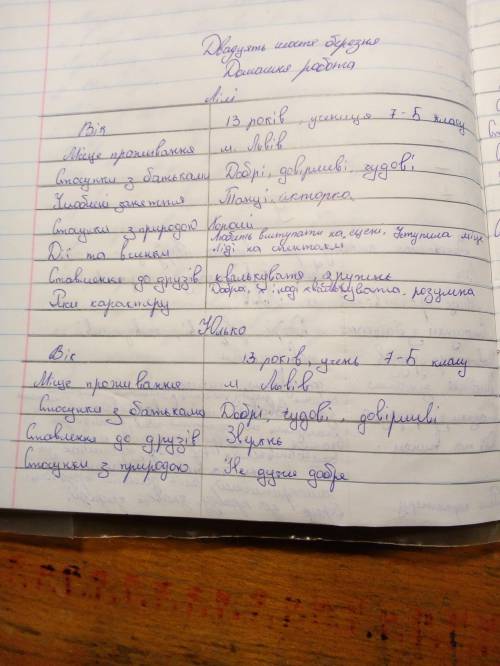 Двадцять шосте березня
Домашня робота
Лілі
Вік 13 років, учениця 7-Б класу
Місце проживання м. Львів
Стосунки з батьками Добрі, довірливі, чудові
Улюблені заняття Танці, акторка
Стосунки з природою Хороші
Дії та вчинки Любить виступати на сцені, Уступила місце Ліді на спектаклі
Ставлення до друзів
Риси характеру Добра, розумна
Юлько
Вік 13 років, учень 7-Б класу
Місце проживання м. Львів
Стосунки з батьками Добрі, чудові, довірливі
Ставлення до друзів
Стосунки з природою Не дуже добре